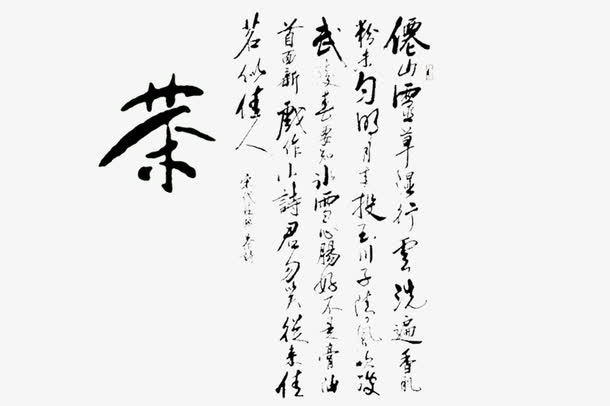 僊山靈草濕行雲洗遍香肌
粉未匀明月来投玉川子清風吹破
武陵春要知冰雪心腸好不是膏油
首面新戲作小詩君勿笑從来佳
茗似佳人
宋代
茶